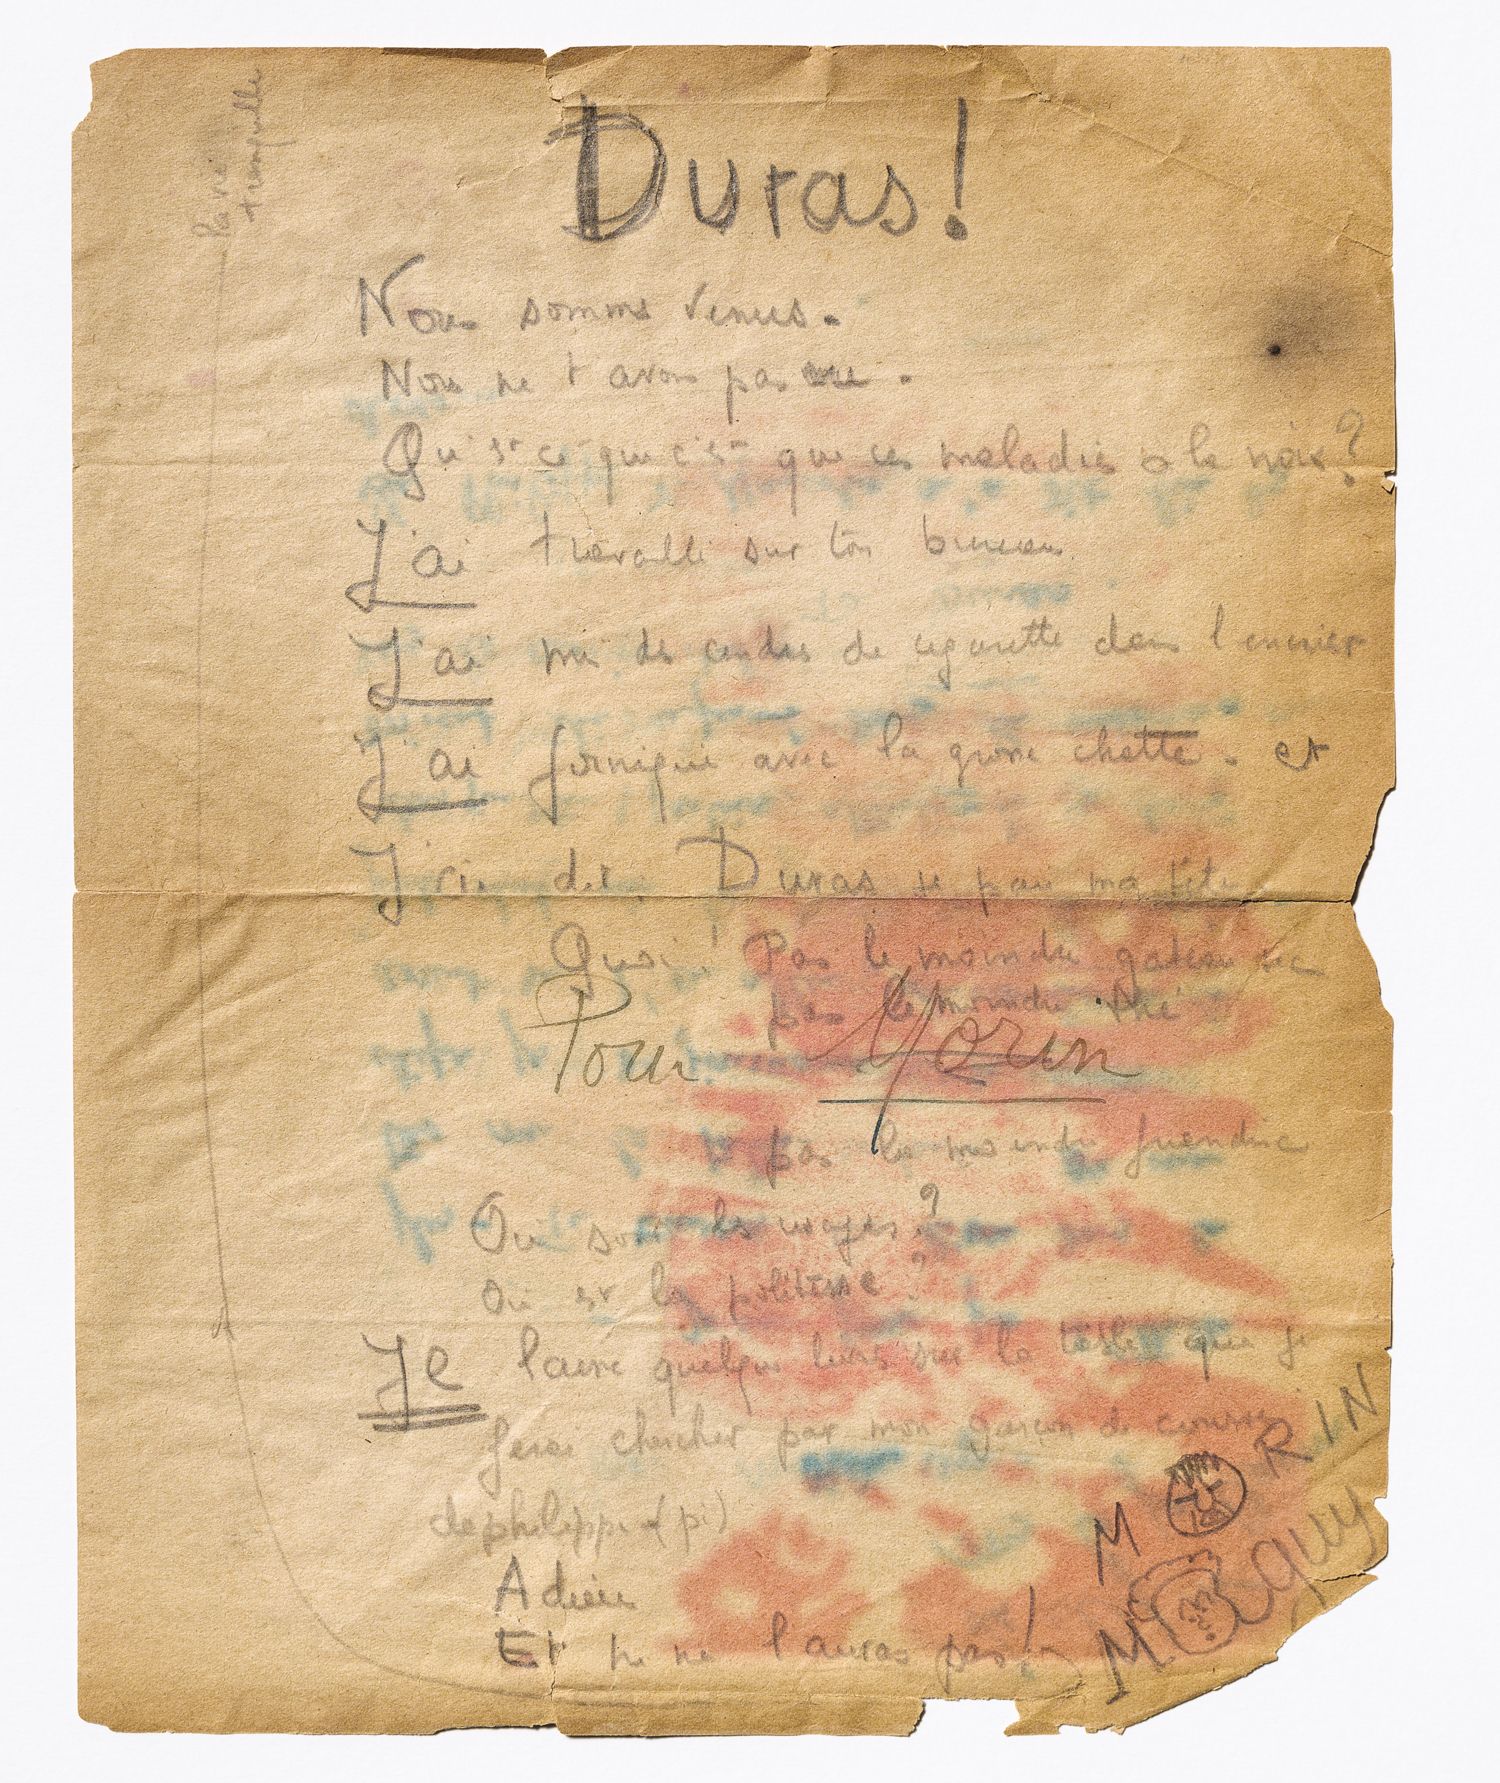 La vie
tranquille
Duras!
Nous sommes venus.
Nous ne t'avons pas vue.
Qu'est ce que c'est que ces maladies à la noix?
J'ai travaillé sur ton bureau
J'ai mis des cendres de cigarette dans l'encrier
J'ai forniqué avec la grosse chatte. et
J'rie dit, Duras se paie ma tête
Quoi! Pas le moindre gateau sec
pas le moindre thé
Pour Morin
pas la moindre friandise
Où sont les usages?
Où est la politesse?
Je laisse quelques livres sur la table que je
ferai chercher par mon garçon de course
dephilippe (pi)
Adieu
Et tu ne l'auras pas!
MORIN
M guy